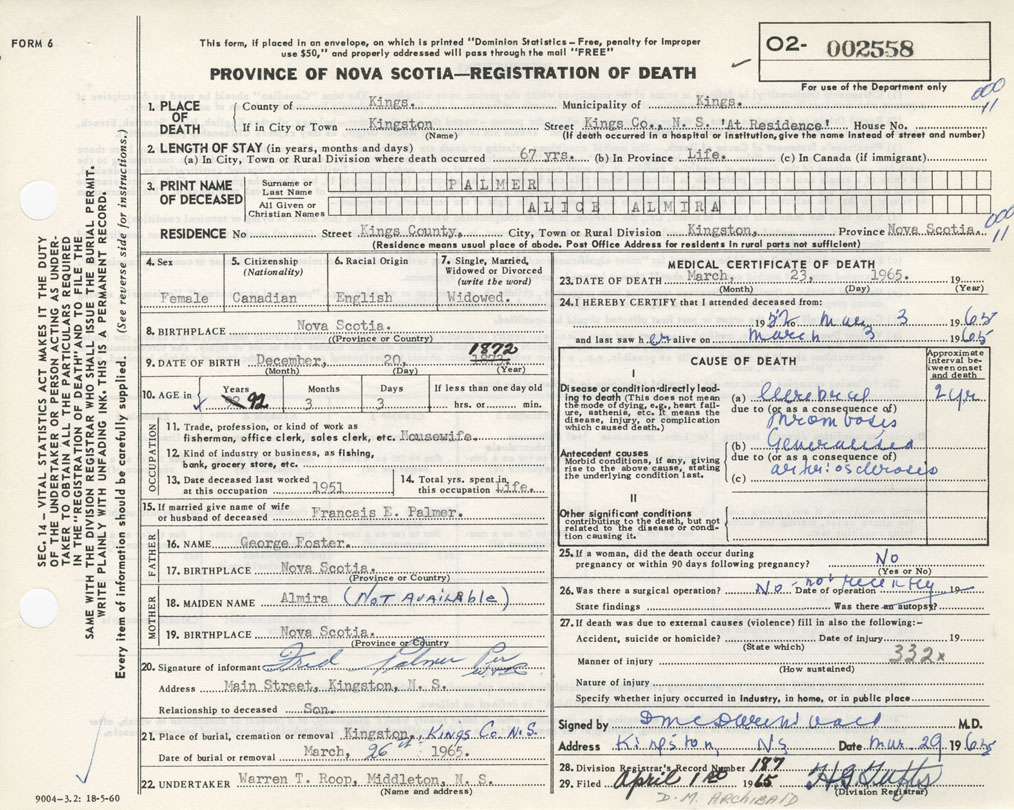 FORM 6
This form, if placed in an envelope, on which is printed "Dominion Statistics – Free, penalty for improper
use $50," and properly addressed will pass through the mail "FREE"
O2- 002558
PROVINCE OF NOVA SCOTIA—REGISTRATION OF DEATH
For use of the Department only
000
11
1. PLACE OF DEATH County of Kings. Municipality of Kings.
If in City or Town Kingston Street Kings Co., N. S. 'At Residence' House No.
(Name) (If death occurred in a hospital or institution, give the name instead of street and number)
2. LENGTH OF STAY (in years, months and days)
(a) In City, Town or Rural Division where death occurred 67 yrs. (b) In Province Life. (c) In Canada (if immigrant)
3. PRINT NAME OF DECEASED Surname or Last Name PALMER
All Given or Christian Names ALICE ALMIRA
000
11
RESIDENCE No Street Kings County, City, Town or Rural Division Kingston, Province Nova Scotia.
(Residence means usual place of abode. Post Office Address for residents in rural parts not sufficient)
4. Sex
Female
5. Citizenship
(Nationality)
Canadian
6. Racial Origin
English
7. Single, Married, Widowed or Divorced
(write the word)
Widowed.
8. BIRTHPLACE Nova Scotia.
(Province or Country)
9. DATE OF BIRTH December, 20, 1872
(Month) (Day) (Year)
10. AGE in Years 92 Months 3 Days 3 If less than one day old hrs. or min.
OCCUPATION
11. Trade, profession, or kind of work as
fisherman, office clerk, sales clerk, etc. Housewife.
12. Kind of industry or business, as fishing,
bank, grocery store, etc.
13. Date deceased last worked at this occupation 1951
14. Total yrs. spent in this occupation Life.
15. If married give name of wife
or husband of deceased Francais E. Palmer.
FATHER
16. NAME George Foster.
17. BIRTHPLACE Nova Scotia.
(Province or Country)
MOTHER
18. MAIDEN NAME Almira (NOT AVAILABLE)
19. BIRTHPLACE Nova Scotia.
(Province or Country)
20. Signature of informant Fred Palmer Per
Address Main Street, Kingston, N. S.
Relationship to deceased Son.
21. Place of burial, cremation or removal Kingston, Kings Co. N.S.
Date of burial or removal March, 26th 1965.
22. UNDERTAKER Warren T. Roop, Middleton, N. S.
(Name and address)
MEDICAL CERTIFICATE OF DEATH
23. DATE OF DEATH March, 23, 1965. 19
(Month) (Day) (Year)
24. I HEREBY CERTIFY that I attended deceased from:
1957 to Mar 3 1965
and last saw her alive on March 3 1965
CAUSE OF DEATH
Approximate interval between onset and death
I
Disease or condition directly leading
to death (This does not mean
the mode of dying, e.g., heart failure,
asthenia, etc. It means the
disease, injury, or complication
which caused death.)
(a) Cerebral 2 yr
due to (or as a consequence of)
Thrombosis
Antecedent causes
Morbid conditions, if any, giving
rise to the above cause, stating
the underlying condition last.
(b) Generalized
due to (or as a consequence of)
arteriosclerosis
(c)
II
Other significant conditions
contributing to the death, but not
related to the disease or condition
causing it.
25. If a woman, did the death occur during
pregnancy or within 90 days following pregnancy? No
(Yes or No)
26. Was there a surgical operation? No - not recently Date of operation 19
State findings Was there an autopsy?
27. If death was due to external causes (violence) fill in also the following:–
Accident, suicide or homicide? Date of injury 19
(State which)
332x
Manner of injury
(How sustained)
Nature of injury
Specify whether injury occurred in industry, in home, or in public place
Signed by M.D.
Address Kingston, NS Date Mar. 29 1965
28. Division Registrar's Record Number 187
29. Filed April 1 1965
(Division Registrar)
D. M. ARCHIBALD
SEC. 14 – VITAL STATISTICS ACT MAKES IT THE DUTY
OF THE UNDERTAKER OR PERSON ACTING AS UNDERTAKER
TO OBTAIN ALL THE PARTICULARS REQUIRED
IN THE "REGISTRATION OF DEATH" AND TO FILE THE
SAME WITH THE DIVISION REGISTRAR WHO SHALL ISSUE THE BURIAL PERMIT.
WRITE PLAINLY WITH UNFADING INK. THIS IS A PERMANENT RECORD.
Every item of information should be carefully supplied. (See reverse side for instructions.)
9004-3.2: 18-5-60